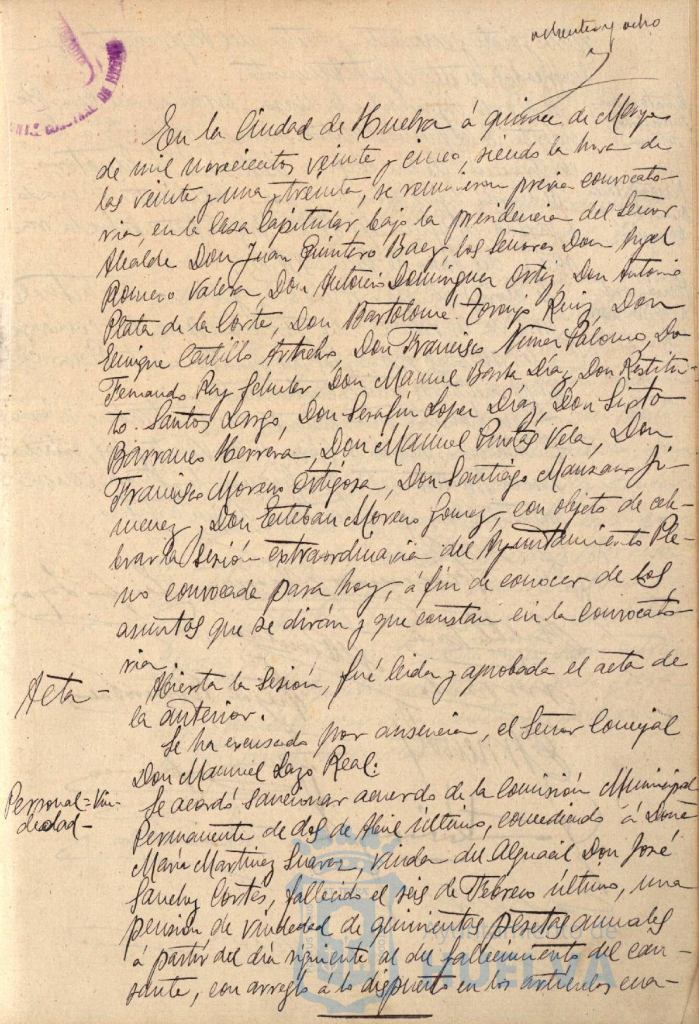 ochenta y ocho
En la Ciudad de Huelva á quince de Mayo
de mil novecientos veinte y cinco, siendo la hora de
las veinte y una y treinta, se reunieron previa convocato-
ria, en la Casa Capitular, bajo la presidencia del Señor
Alcalde Don Juan Quintero Baez, los Señores Don Angel
Romero Valera, Don Antonio Dominguez Ortiz, Don Antonio
Plata de la Corte, Don Bartolomé Toronjo Ruiz, Don
Enrique Castillo, Don Francisco Palomo, Don
Fernando Rey, Don Manuel Díaz, Don Restitu-
to Santos Largo, Don Serafín Lopez Díaz, Don Sixto
Barranco Herrera, Don Manuel Vela, Don
Francisco Moreno Ortigosa, Don Santiago Manzano Ji-
menez y Don Esteban Moreno Gomez, con objeto de cele-
brar la sesión extraordinaria del Ayuntamiento Ple-
no convocada para hoy, á fin de conocer de los
asuntos que se dirán y que constan en la convocato-
ria.
Acta - Abierta la sesión, fué leida y aprobada el acta de
la anterior.
Se ha excusado por ausencia, el Señor Concejal
Don Manuel Lazo Real.
Personal = Viu-
dedad -
Se acordó sancionar acuerdo de la Comisión Municipal
Permanente de dos de Abril último, concediendo á Doña
María Martinez Suarez, viuda del Alguacil Don José
Sanchez Cortés, fallecido el seis de Febrero último, una
pensión de viudedad de quinientas pesetas anuales
á partir del día siguiente al del fallecimiento del cau-
sante, con arreglo a lo dispuesto en los artículos cua-
HUELVA